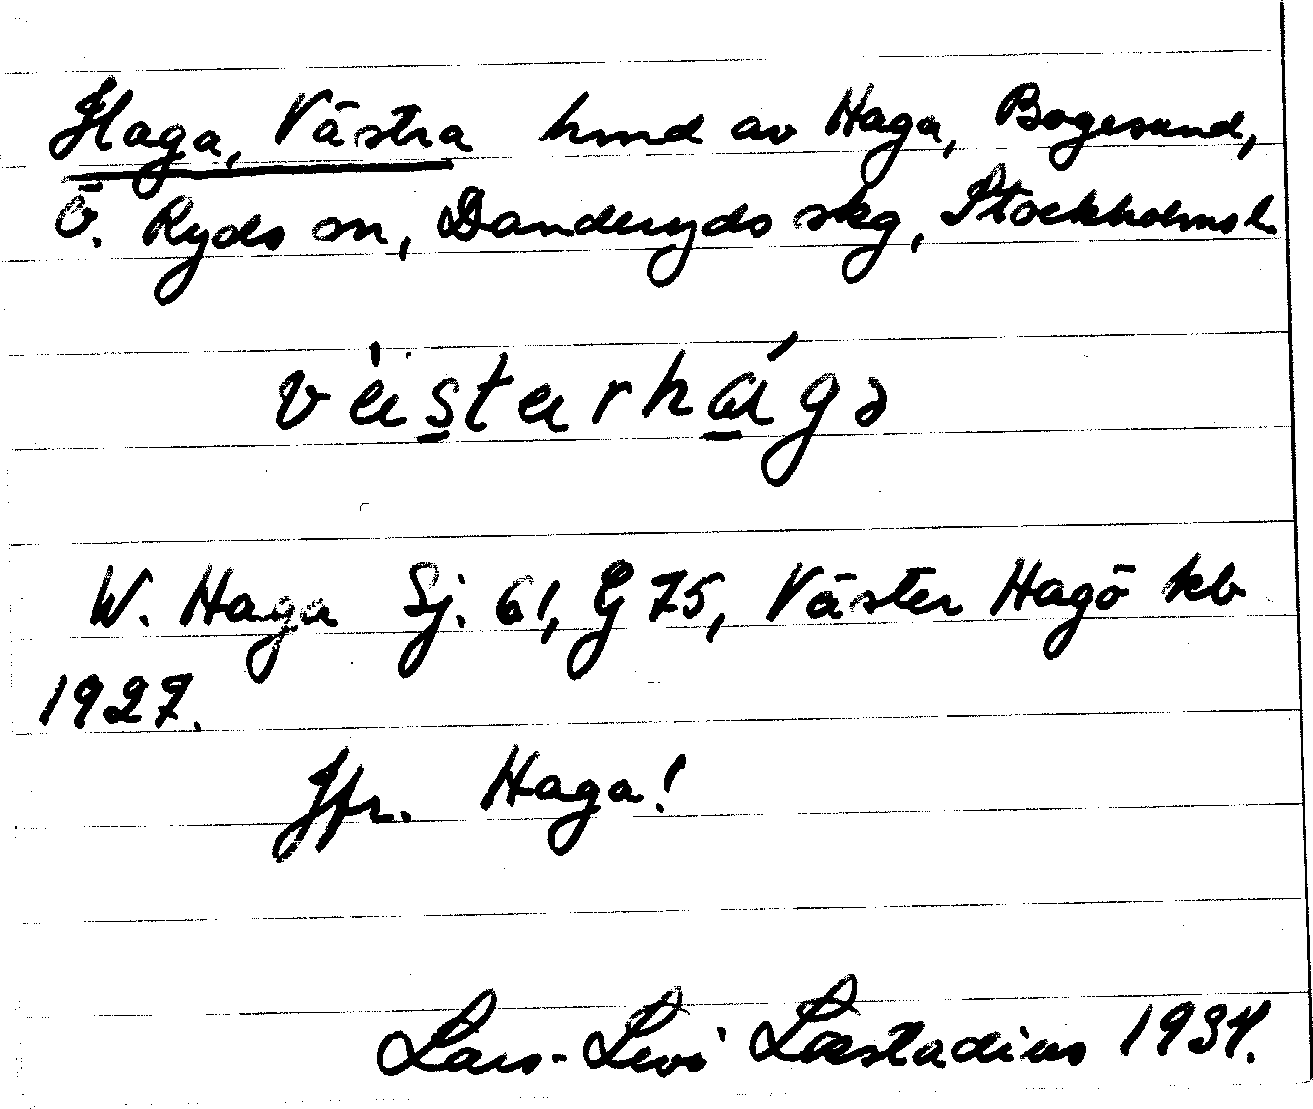 Haga, Västra hmd av Haga, Bogesund,
Ö. Ryds sn, Danderyds skg, Stockholms l.
västerhága
W. Haga Sj. 61, G 75, Väster Hagö kb
1927.
Jfr. Haga!
Lars-Levi Læstadius 1934.